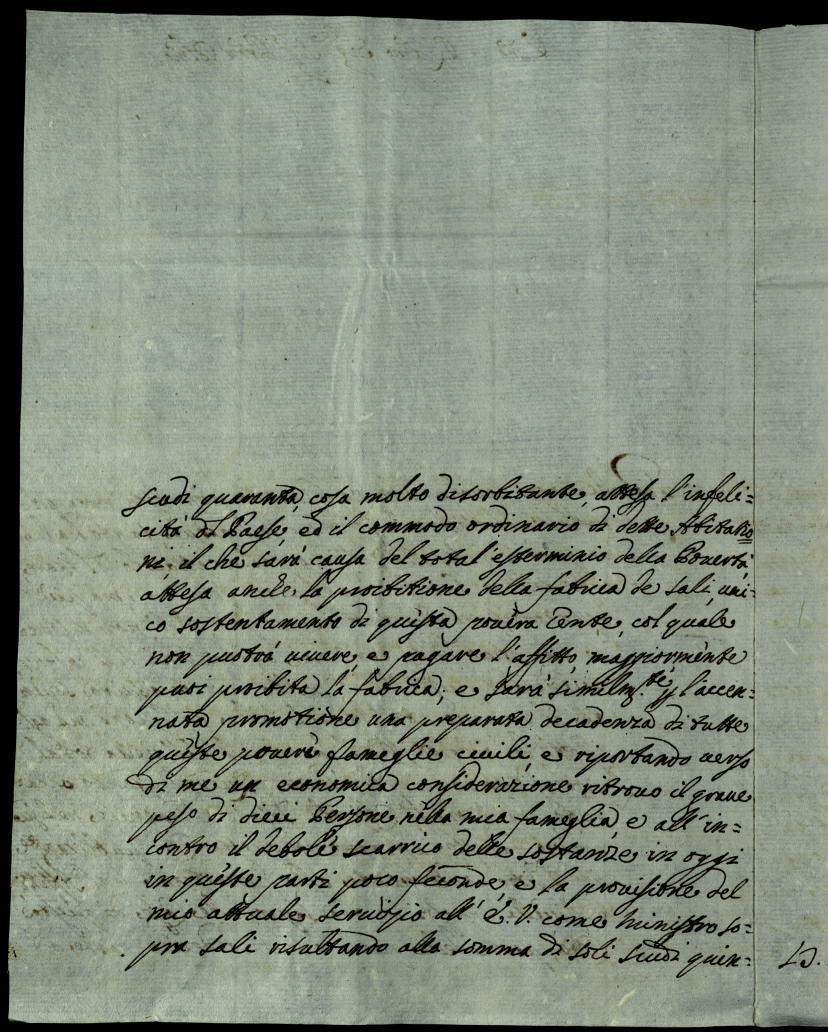 scudi quaranta, cosa molto disorbitante, attesa l'infeli=
cità del Paese, ed il commodo ordinario di dette Abitatio
ni il che sarà causa del total'esterminio della Povertà
attesa anche la proibitione della fabrica de sali, uni=
co sostentamento di questa povera Gente, col quale
non puotrà vivere, e pagare l'affitto, maggiormente
puoi proibita la fabrica; e sarà similm.te p l'accen=
nata promotione una preparata decadenza di tutte
queste povere fameglie civili, e riportando verso
di me un economica considerazione ritrovo il grave
peso di dieci Persone nella mia fameglia, e all'in=
contro il debole scarrico delle sostanze in oggi
in queste parti poco feconde, e la provisione del
mio attuale servizio all' E. V. come Ministro so=
pra sali risultando alla somma di soli scudi quin=